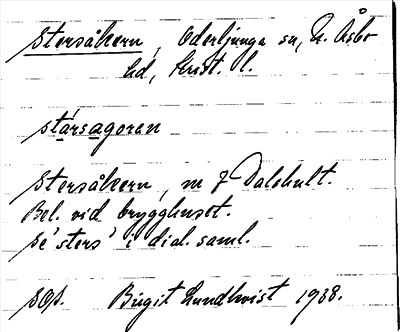 Stersåkern, Oderljunga sn, N. Åsbo
hd, Krist. l.
stársagoren
Stersåkern, m f Dalshult.
Bel. vid brygghuset.
Se 'sters' i dial. saml.
SOA. Birgit Lundkvist 1938.